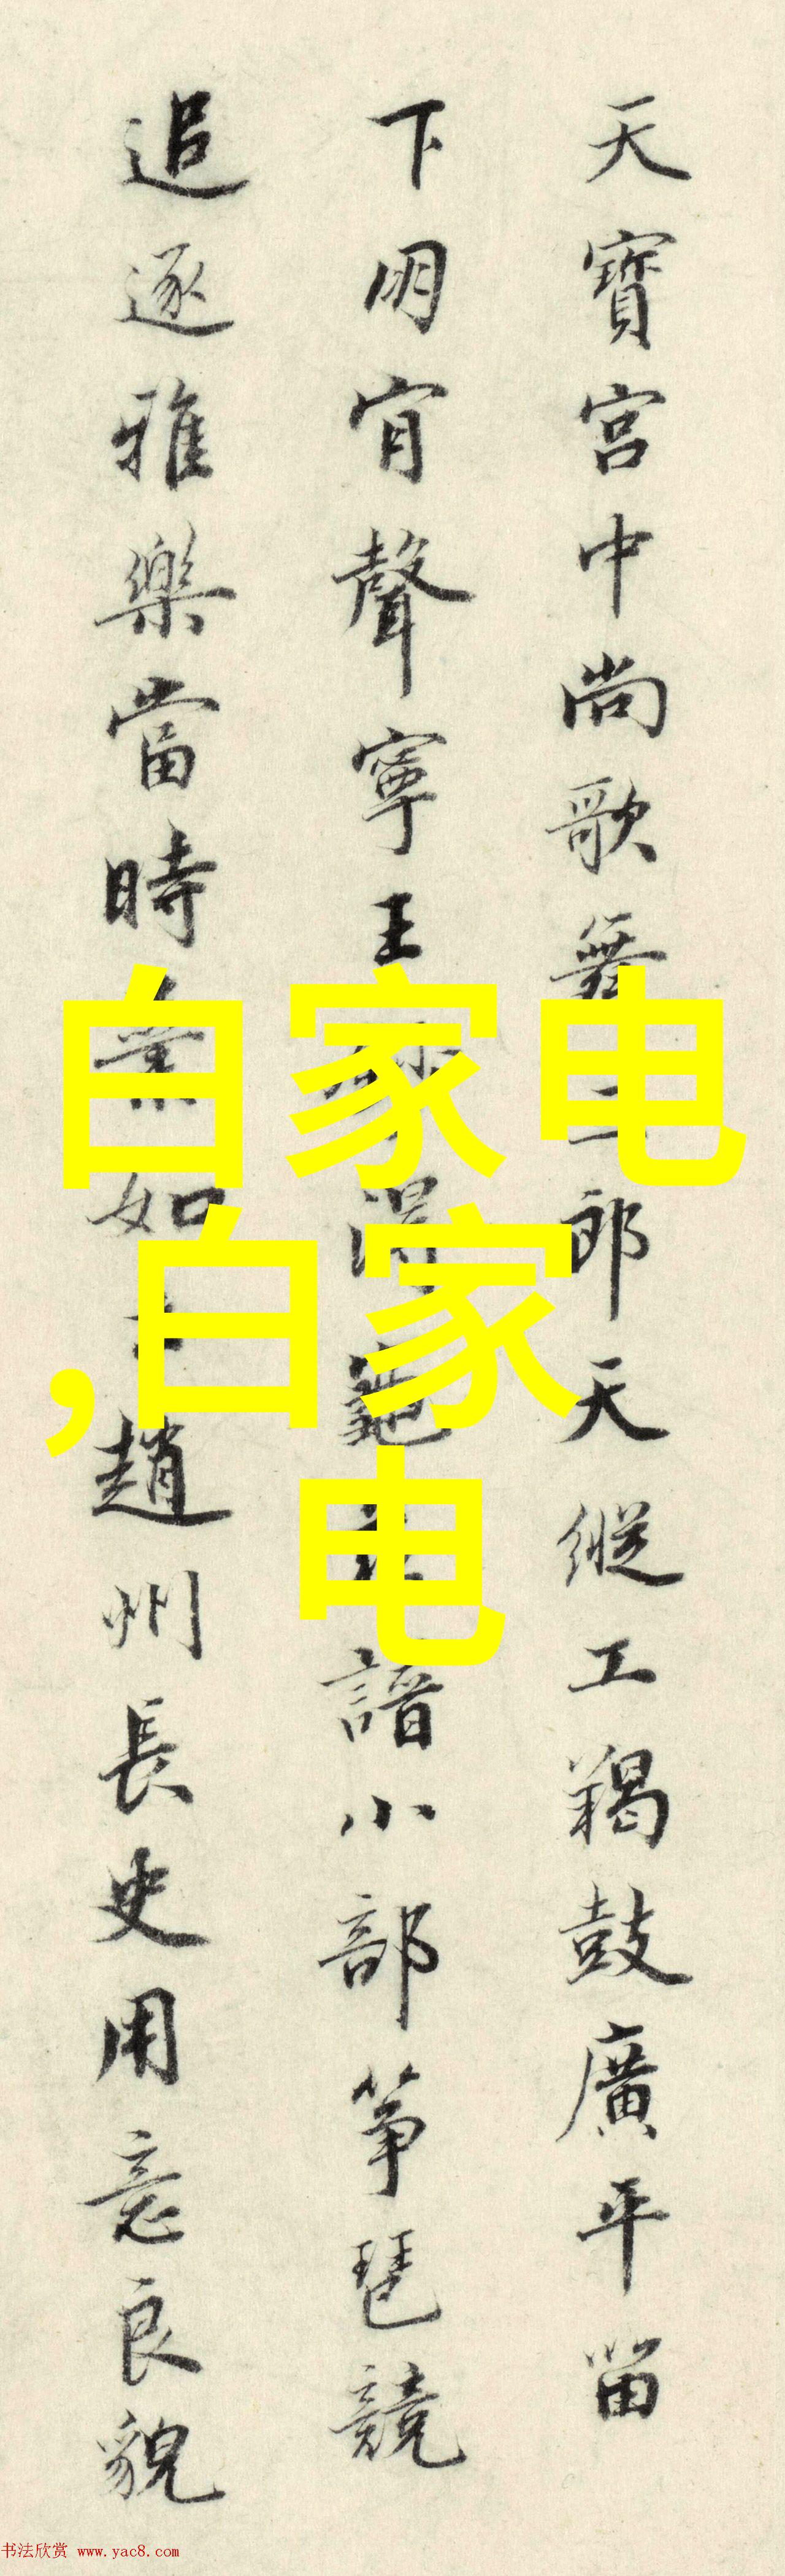 天寶宮中尚歌舞二郎天縱工羯鼓廣平留
下朙肓聲寧王龜諳小部箏琶競
追逐雅樂當時無如趙州長史用意良貌
自家电
,自家
电
书法欣赏 www.yac8.com